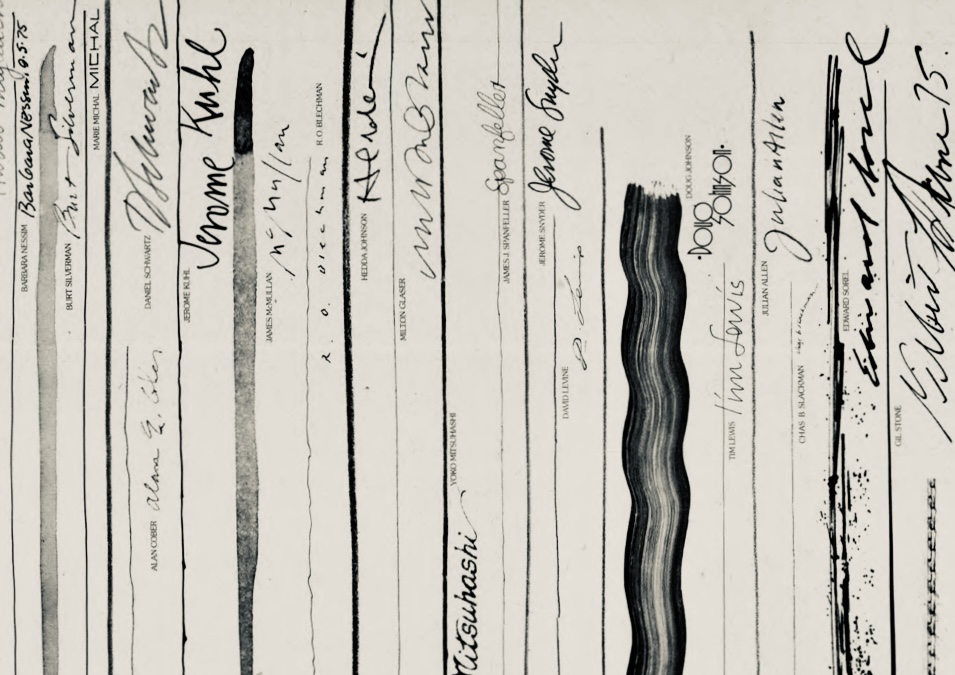 Barbara Nessim 9.5.75
BARBARA NESSIM
Burt Silverman
BURT SILVERMAN
MICHAL
MARIE MICHAL
D Schwartz
DANIEL SCHWARTZ
Alan E. Cober
ALAN COBER
Jerome Kuhl
JEROME KUHL
McMullan
JAMES McMULLAN
R.O. BLECHMAN
R. O. Blechman
Hedda
HEDDA JOHNSON
MILTON GLASER
YOKO MITSUHASHI
Mitsuhashi
Spanfeller
JAMES J. SPANFELLER
Jerome Snyder
JEROME SNYDER
DAVID LEVINE
DOUG JOHNSON
Tim Lewis
TIM LEWIS
Julian Allen
JULIAN ALLEN
CHAS B. SLACKMAN
EDWARD SOREL
Edward Sorel
Gilbert Stone 75.
GIL STONE